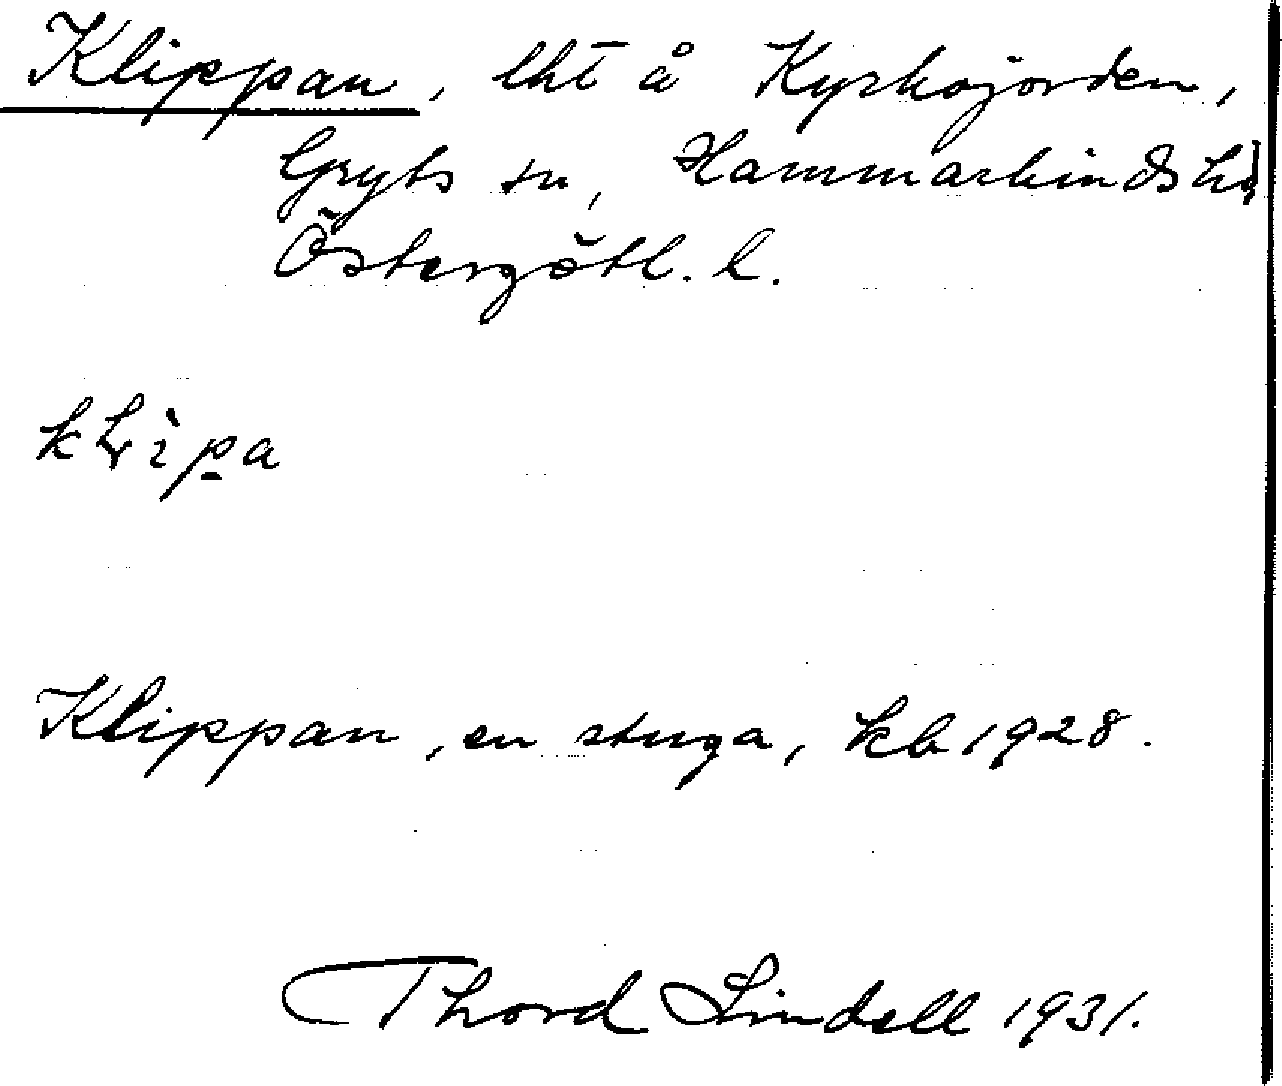 Klippan, lht å Kyrkojorden,
Gryts sn, Hammarkinds hd
Östergötl. l.
Klippan, en stuga, kb 1928.
Thord Lindell 1931.